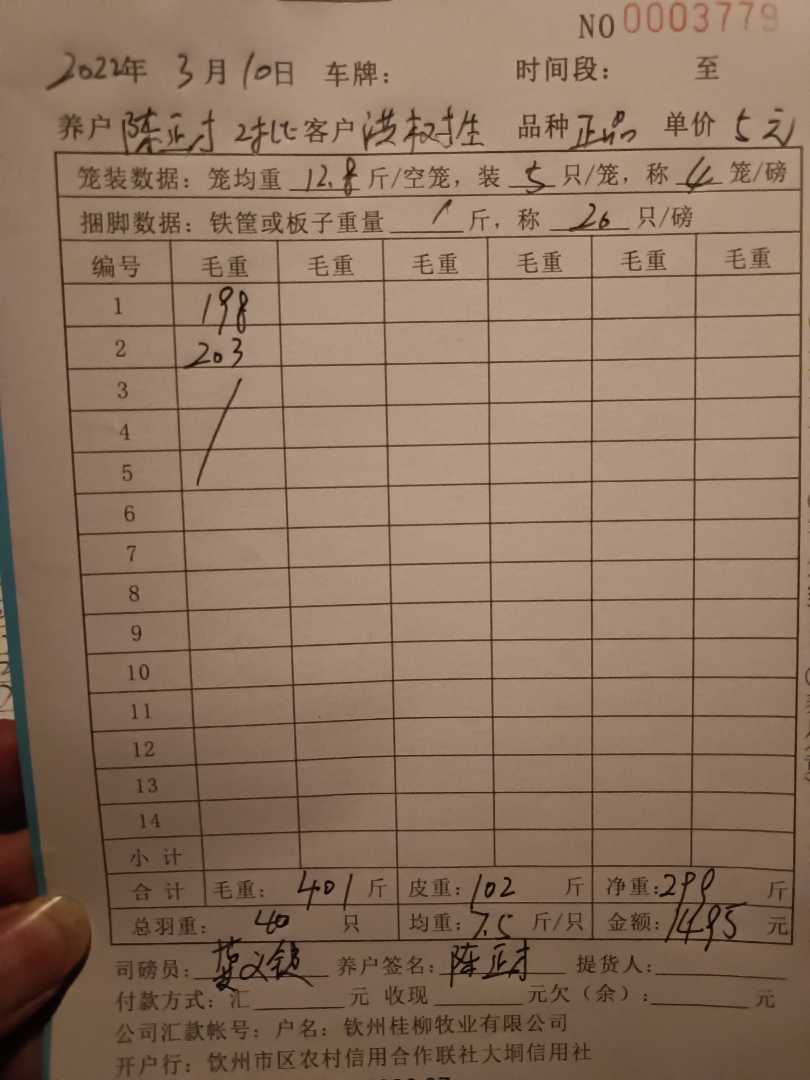 NO 0003779
2022年 3月10日 车牌： 时间段： 至
养户 陈正才 2批 客户 洪权生 品种 正品 单价 5元
笼装数据：笼均重 12.8 斤/空笼，装 5 只/笼，称 4 笼/磅
捆脚数据：铁筐或板子重量 / 斤，称 20 只/磅
编号 毛重 毛重 毛重 毛重 毛重 毛重
1 198
2 203
3
4
5
6
7
8
9
10
11
12
13
14
小计
合计 毛重：401斤 皮重：102 斤 净重：299 斤
总羽重： 40 只 均重：7.5 斤/只 金额：1495 元
司磅员： 养户签名：陈正才 提货人：
付款方式：汇 元 收现 元欠（余）： 元
公司汇款帐号：户名：钦州桂柳牧业有限公司
开户行：钦州市区农村信用合作联社大垌信用社